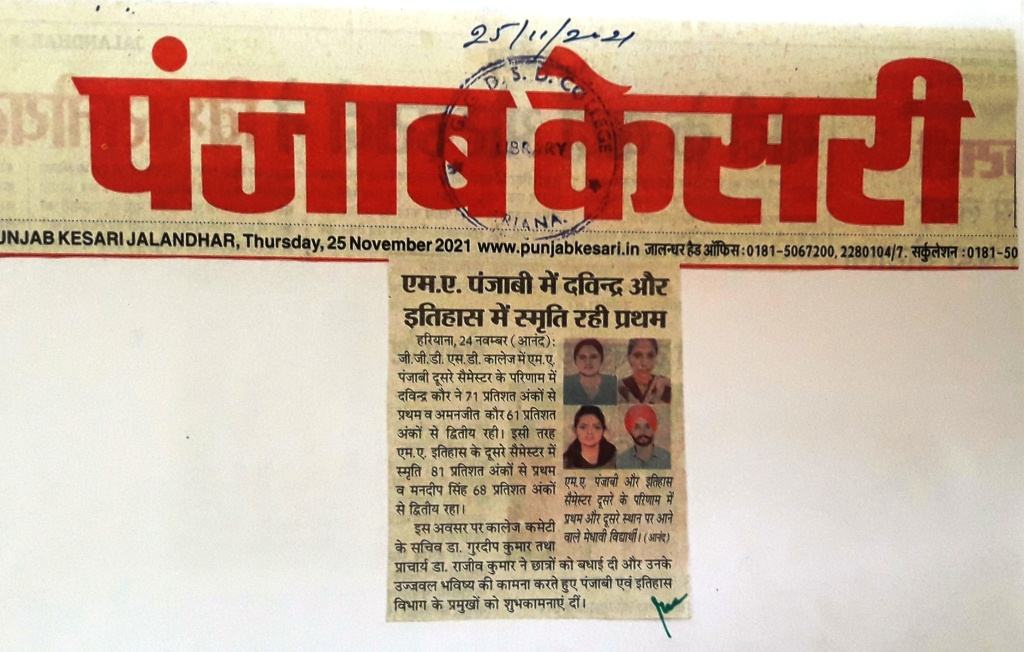 25/11/2021
पंजाब केसरी
G.G.D.S.D. COLLEGE
LIBRARY
RIANA.
UNJAB KESARI JALANDHAR, Thursday, 25 November 2021 www.punjabkesari.in जालन्धर हैड ऑफिस : 0181-5067200, 2280104/7. सर्कुलेशन : 0181-50
एम.ए. पंजाबी में दविन्द्र और
इतिहास में स्मृति रही प्रथम
हरियाना, 24 नवम्बर (आनंद):
जी.जी.डी. एस.डी. कालेज में एम.ए.
पंजाबी दूसरे सैमेस्टर के परिणाम में
दविन्द्र कौर ने 71 प्रतिशत अंकों से
प्रथम व अमनजीत कौर 61 प्रतिशत
अंकों से द्वितीय रही। इसी तरह
एम.ए. इतिहास के दूसरे सैमेस्टर में
स्मृति 81 प्रतिशत अंकों से प्रथम
व मनदीप सिंह 68 प्रतिशत अंकों
से द्वितीय रहा।
एम.ए. पंजाबी और इतिहास
सैमेस्टर दूसरे के परिणाम में
प्रथम और दूसरे स्थान पर आने
वाले मेधावी विद्यार्थी। (आनंद)
इस अवसर पर कालेज कमेटी
के सचिव डा. गुरदीप कुमार तथा
प्राचार्य डा. राजीव कुमार ने छात्रों को बधाई दी और उनके
उज्जवल भविष्य की कामना करते हुए पंजाबी एवं इतिहास
विभाग के प्रमुखों को शुभकामनाएं दीं।